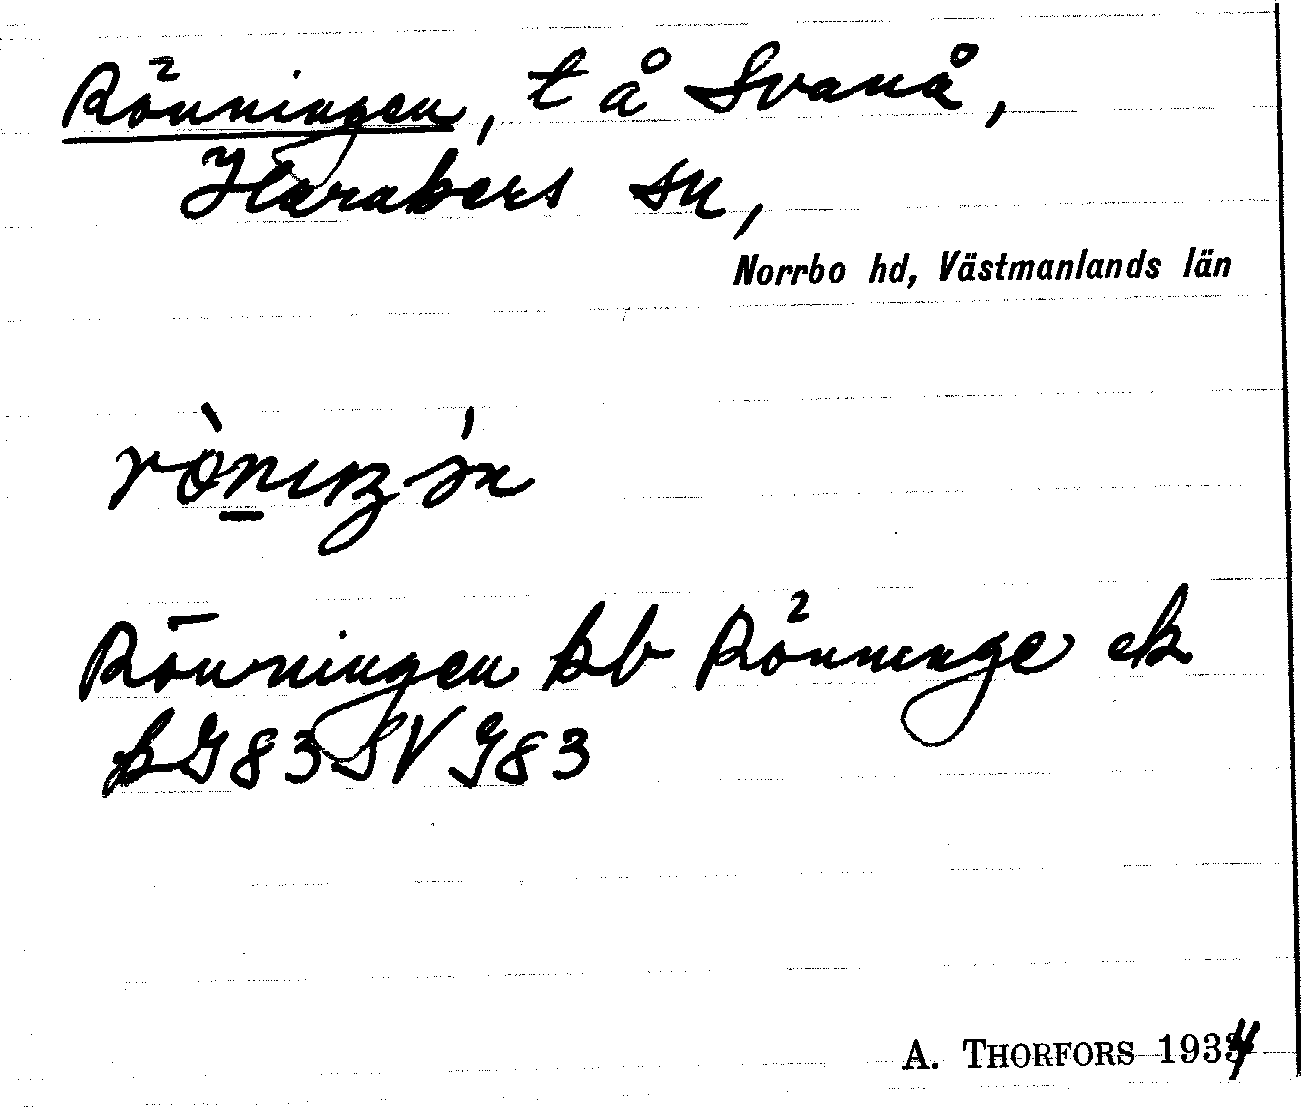 Rönningen, t å Svanå,
Haraker s sn,
Norrbo hd, Västmanlands län
Rönningen kb Rönninge ek
G83 SV G83
A. THORFORS 1934